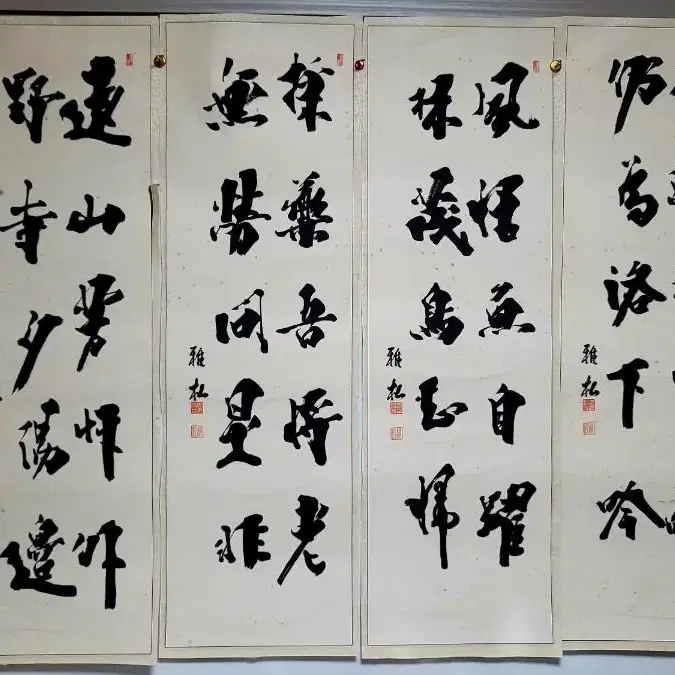 仍為洛下吟
雅松
風恬魚自躍
林茂鳥知歸
雅松
採藥吾將老
無勞問是非
雅松
遠山芳草外
野寺夕陽邊